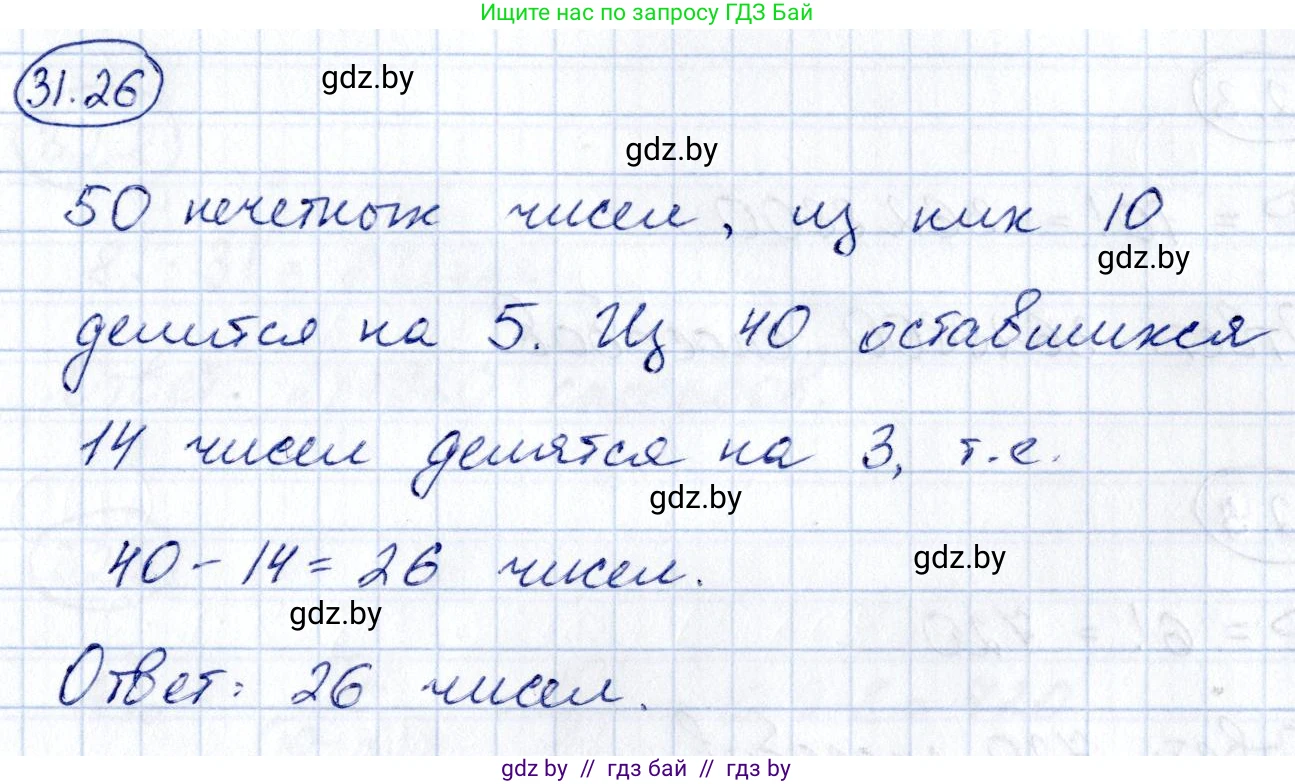 Ищите нас по запросу ГДЗ Бай
31.26
gdz.by
gdz.by
50 нечетных чисел, из них 10
gdz.by
делится на 5. Из 40 оставшихся
14 чисел делятся на 3, т.е.
gdz.by
40 - 14 = 26 чисел.
gdz.by
gdz.by
Ответ: 26 чисел.
gdz.by // гдз бай // гдз by